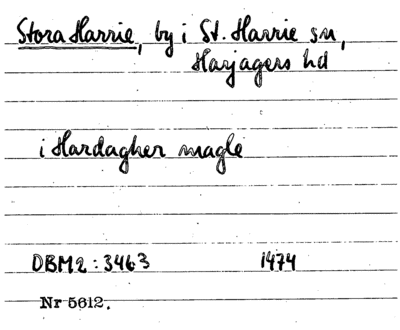 Stora Harrie, by i St. Harrie sn,
Harjagers hd
i Hardagher magle
DBM2:3463 1474
Nr 5612.